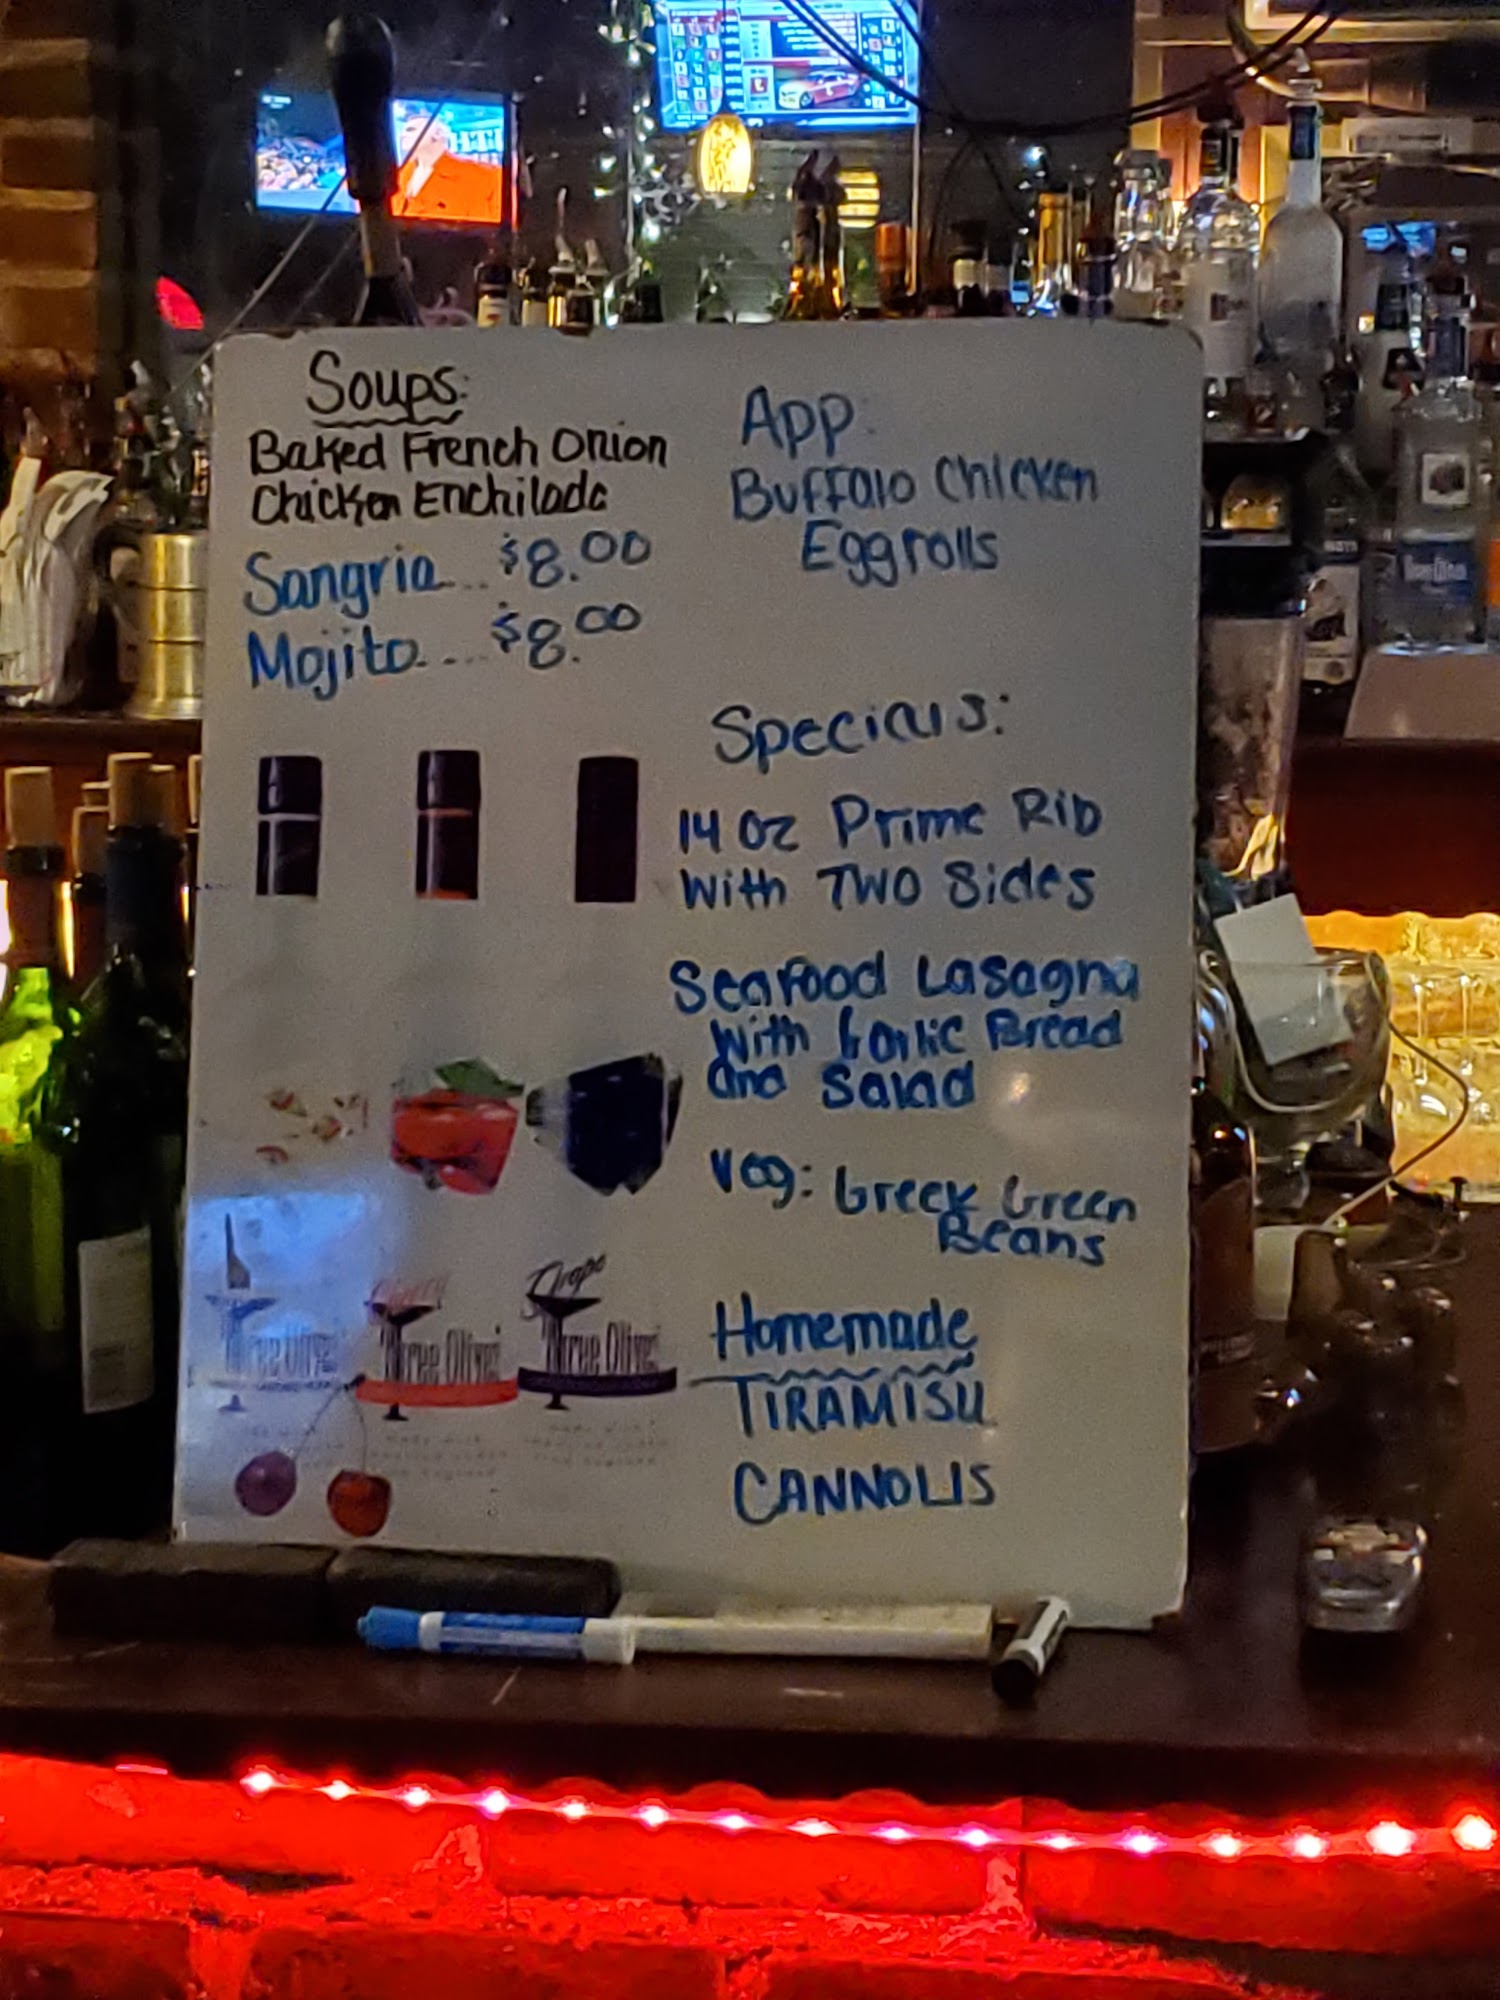 Soups:
Baked French Onion
Chicken Enchilada
Sangria... $8.00
Mojito.... $8.00
App:
Buffalo Chicken
Eggrolls
Specials:
14 oz Prime Rib
With Two Sides
Seafood Lasagna
With Garlic Bread
and Salad
Veg: Greek Green
Beans
Homemade
TIRAMISU
CANNOLIS
Cherry
Grape
Three Olives
Three Olives
Three Olives